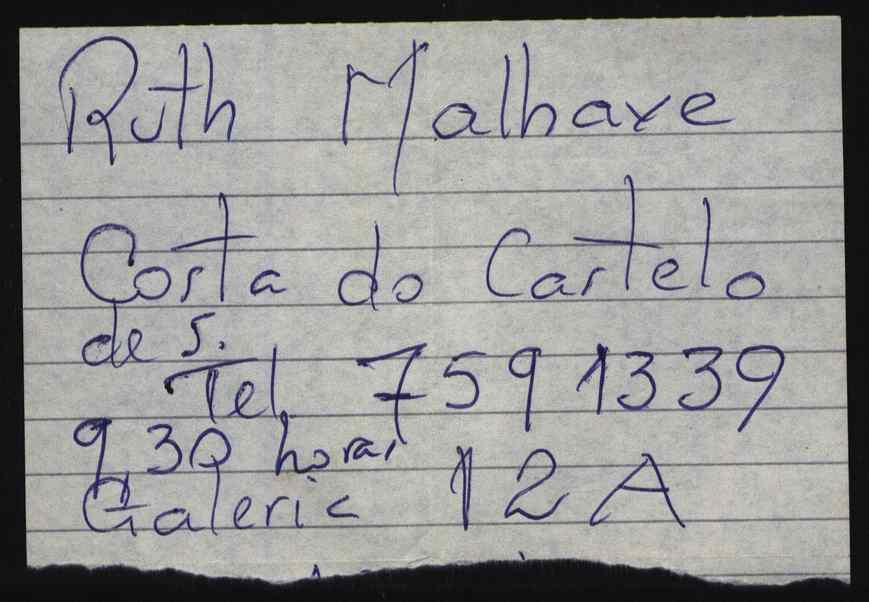 Ruth Malhave
Costa do Castelo
de S.
Tel. 7591339
9,30 horas
Galeria 12 A